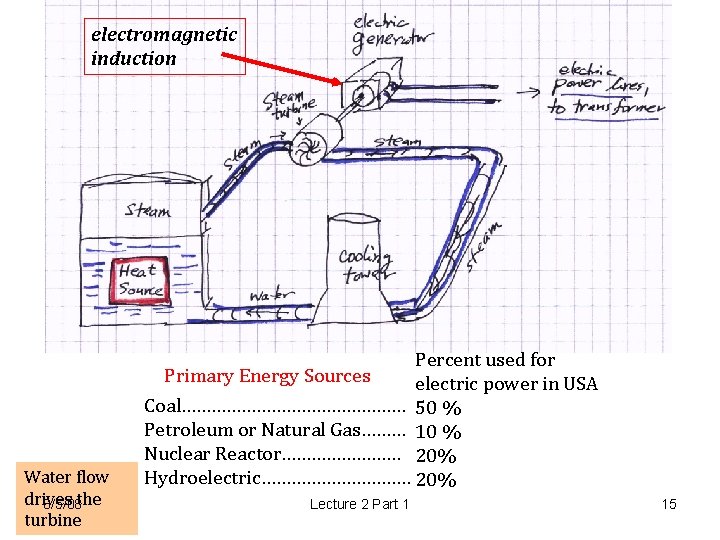 electromagnetic
induction
electric
generator
electric
power lines,
to transformer
Steam
turbine
Steam
steam
Steam
steam
Heat
Source
Cooling
tower
water
Percent used for
electric power in USA
Primary Energy Sources
Coal............................................ 50 %
Petroleum or Natural Gas......... 10 %
Nuclear Reactor........................ 20%
Hydroelectric.............................. 20%
Water flow
drives the
turbine
Lecture 2 Part 1
15